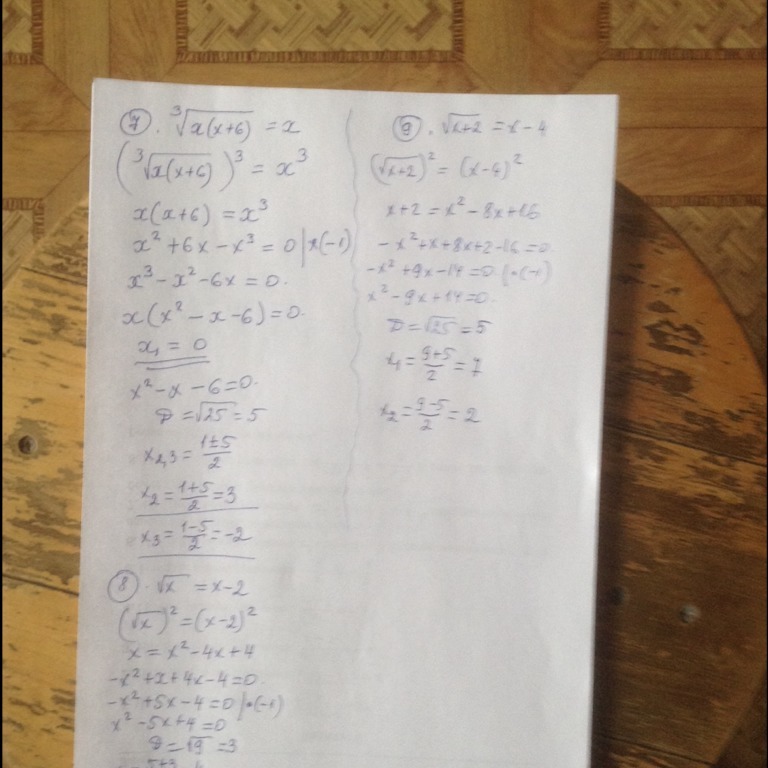 7. ³√x(x+6) = x
(³√x(x+6))³ = x³
x(x+6) = x³
x² + 6x − x³ = 0 | *(-1)
x³ − x² − 6x = 0.
x(x² − x − 6) = 0.
x₁ = 0
x² − x − 6 = 0.
D = √25 = 5
x₂,₃ = 1±5/2
x₂ = 1+5/2 = 3
x₃ = 1−5/2 = −2
8. √x = x−2
(√x)² = (x−2)²
x = x² − 4x + 4
−x² + x + 4x − 4 = 0.
−x² + 5x − 4 = 0 | •(−1)
x² − 5x + 4 = 0
D = √9 = 3
9. √x+2 = x − 4
(√x+2)² = (x−4)²
x + 2 = x² − 8x + 16
−x² + x + 8x + 2 − 16 = 0.
−x² + 9x − 14 = 0. | •(−1)
x² − 9x + 14 = 0.
D = √25 = 5
x₁ = 9+5/2 = 7
x₂ = 9−5/2 = 2